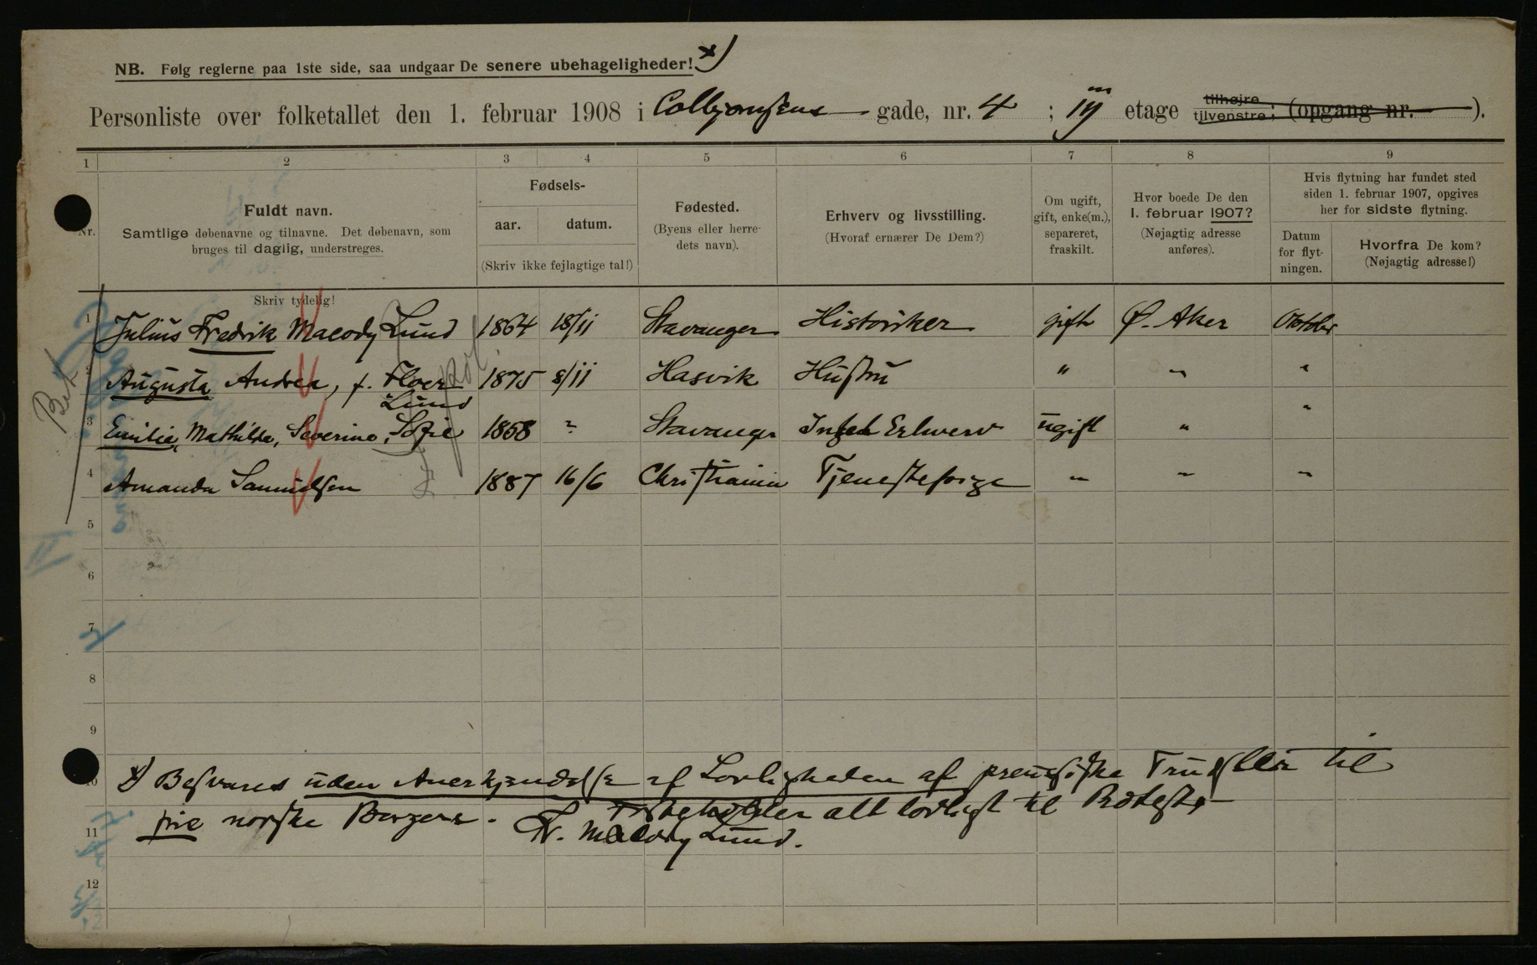 NB. Følg reglerne paa 1ste side, saa undgaar De senere ubehageligheder! x)
Personliste over folketallet den 1. februar 1908 i Colbjørnsens gade, nr. 4 ; III etage tilhøjre tilvenstre; (opgang nr. ).
1 2 3 4 5 6 7 8 9
Nr.
Fuldt navn.
Samtlige døbenavne og tilnavne. Det døbenavn, som
bruges til daglig, understreges.
Skriv tydelig!
Fødsels-
aar. datum.
(Skriv ikke fejlagtige tal!)
Fødested.
(Byens eller herre-
dets navn).
Erhverv og livsstilling.
(Hvoraf ernærer De Dem?)
Om ugift,
gift, enke(m.),
separeret,
fraskilt.
Hvor boede De den
1. februar 1907?
(Nøjagtig adresse
anføres).
Hvis flytning har fundet sted
siden 1. februar 1907, opgives
her for sidste flytning.
Datum
for flyt-
ningen.
Hvorfra De kom?
(Nøjagtig adresse!)
1 Julius Fredrik Macody Lund 1864 18/11 Stavanger Historiker gift Ø. Aker Oktober
2 Augusta Andrea, f. Floer 1875 8/11 Hasvik Hustru " " "
Lund
3 Emilie, Mathilde, Severine, Sofie 1858 ? Stavanger Intet Erhverv ugift " "
4 Amanda Samuelsen 1887 16/6 Christiania Tjenestepige " " "
5
6
7
8
9
10
x) Besvares uden Anerkjendelse af Lovligheden af preussiske Trudsler til
frie norske Borgere. Forbeholder alt lovligt til Protest
11
Fr. Macody Lund.
12